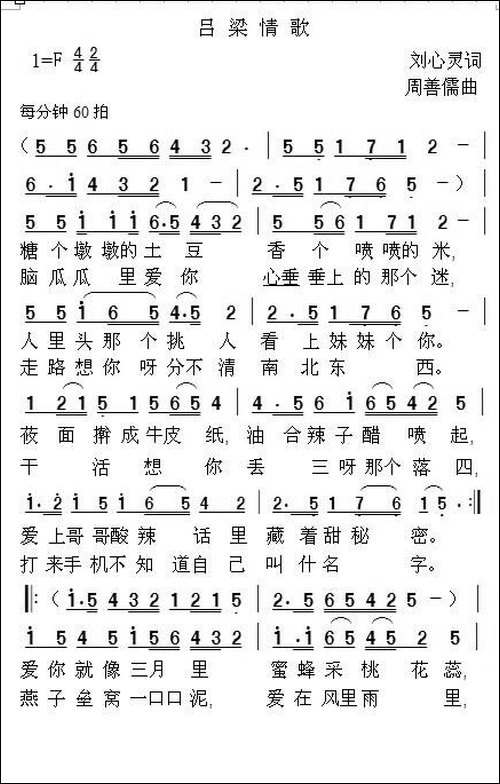 吕梁情歌
1=F 4/4 2/4
刘心灵词
周善儒曲
每分钟60拍
(5 5 6 5 6 4 3 2 · | 5 5 1 7 1 2 – |
6 · 1 4 3 2 1 – | 2 · 5 1 7 6 5 –) |
5 5 1 1 1 6·5 4 3 2 | 5 5 6 1 7 1 2 – |
糖个墩墩的土豆 香个喷喷的米,
脑瓜瓜里爱你 心垂垂上的那个迷,
5 5 1 6 5 4·5 2 | 5 5 1 7 6 5 – |
人里头那个挑人看上妹妹个你。
走路想你呀分不清南北东西。
1 2 1 5 1 5 6 5 4 | 4 · 5 6 1 6 5 4 2 5 |
莜面擀成牛皮纸,油合辣子醋喷起,
干活想你丢三呀那个落四,
1·2 1 5 1 6 5 4 2 | 2 · 5 1 7 6 1 5 · :||
爱上哥哥酸辣话里藏着甜秘密。
打来手机不知道自己叫什名字。
||: (1·5 4 3 2 1 2 1 5 | 2 · 5 6 5 4 2 5 –) |
1 5 4 5 6 5 4 2 | 1·1 6 5 4 5 2 5 |
爱你就像三月里 蜜蜂采桃花蕊,
燕子垒窝一口口泥, 爱在风里雨里,